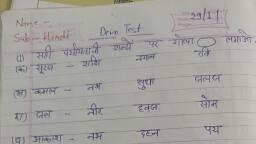 Name :-
29/1
Sub:- Hindi Deva Test
(1) सही पर्यायवाची शब्दों पर गोला लगाओ
(क) सूरज - शशि गगन रवि
(ख) कमल - नभ सुधा जलज
(ग) जल - नीर सोम
(घ) आकाश - नभ पय